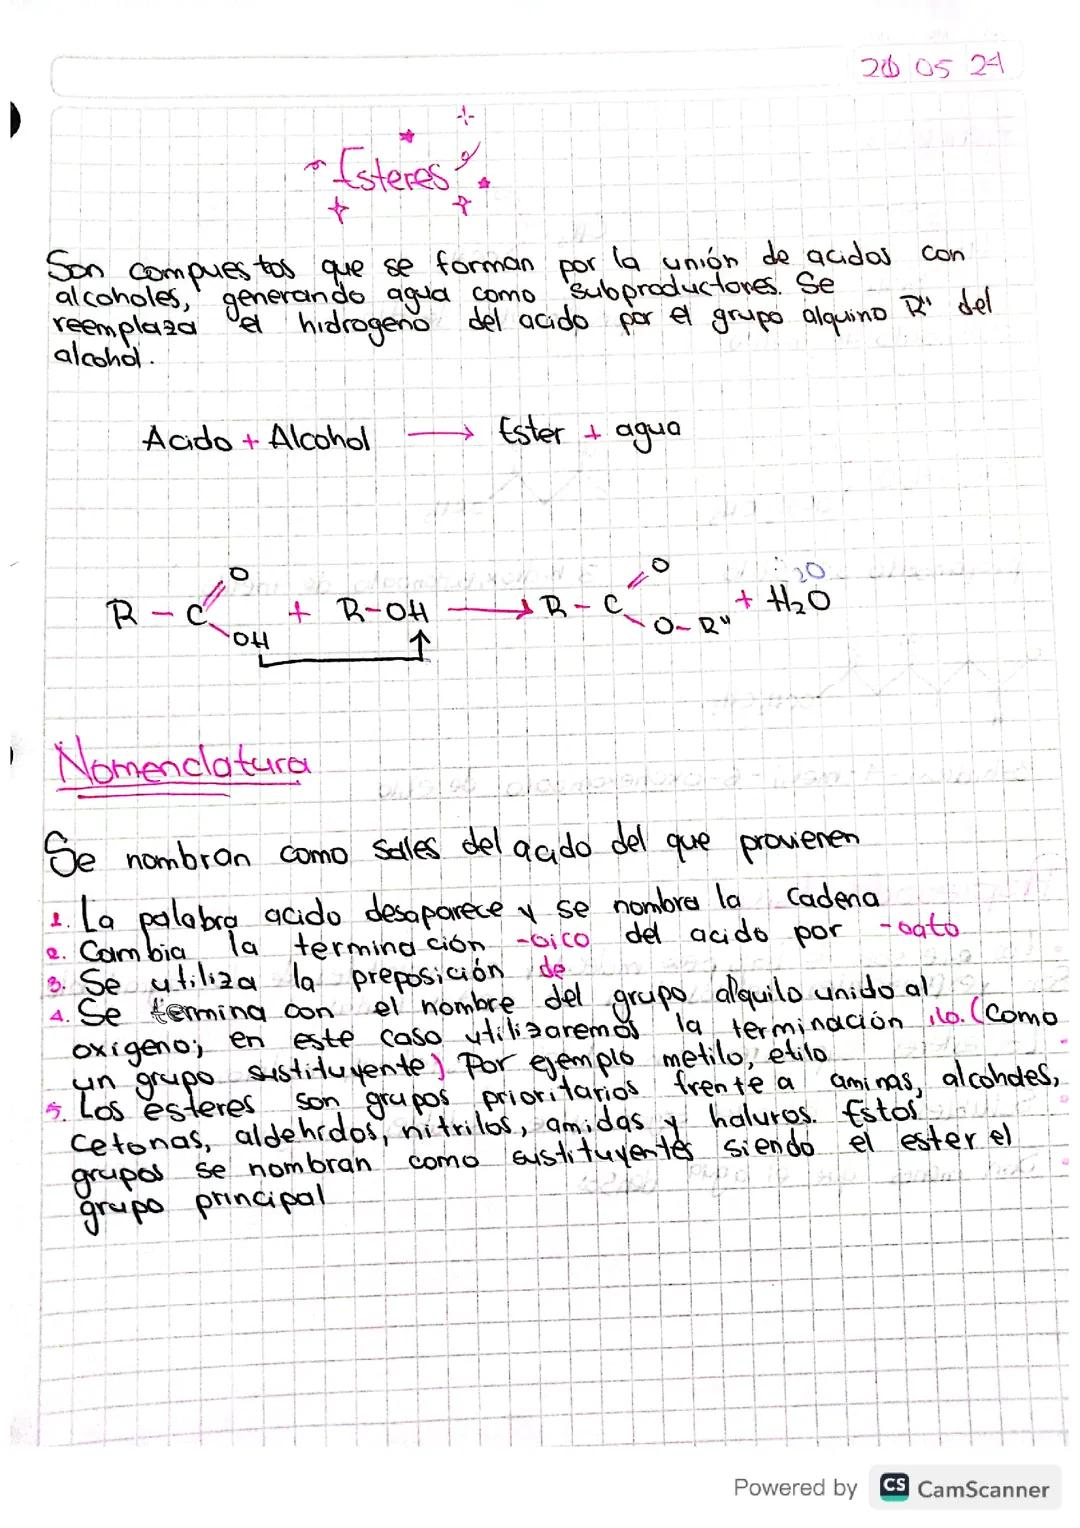 20 05 24
Esteres
Son compuestos que se forman por la unión de acidos con
alcoholes, generando agua como subproductores. Se
reemplaza el hidrogeno del acido por el grupo alquino R" del
alcohol.
Acido + Alcohol → Ester + agua
O O 20
R - C + R-OH → R - C + H2O
OH O-R"
Nomenclatura
Se nombran como sales del acido del que provienen
1. La palabra acido desaparece y se nombra la cadena
2. Cambia la terminación -oico del acido por -oato
3. Se utiliza la preposición de
4. Se termina con el nombre del grupo alquilo unido al
oxigeno; en este caso utilizaremos la terminación ilo. (Como
un grupo sustituyente) Por ejemplo metilo, etilo
5. Los esteres son grupos prioritarios frente a aminas, alcoholes,
cetonas, aldehidos, nitrilos, amidas y haluros. Estos
grupos se nombran como sustituyentes siendo el ester el
grupo principal
Powered by CS CamScanner